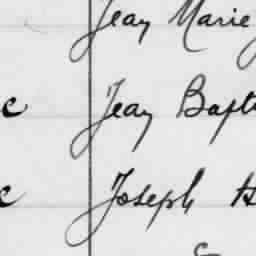 Jean Marie
c Jean Bapt
c Joseph H